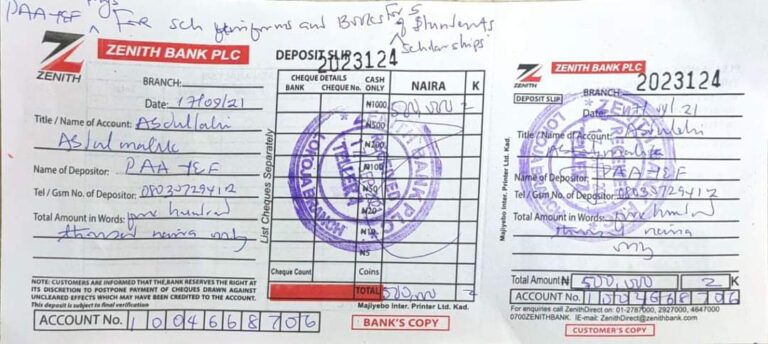 PAA-YEF For sch uniforms and Books For 5 of students
scholarships
ZENITH BANK PLC
ZENITH
DEPOSIT SLIP
2023124
BRANCH:
Date: 17/09/21
Title / Name of Account: Abdullahi
Abdulmalik
Name of Depositor: PAA YEF
Tel / Gsm No. of Depositor: 08030729412
Total Amount in Words: five hundred
thousand naira only
NOTE: CUSTOMERS ARE INFORMED THAT THE BANK RESERVES THE RIGHT AT
ITS DISCRETION TO POSTPONE PAYMENT OF CHEQUES DRAWN AGAINST
UNCLEARED EFFECTS WHICH MAY HAVE BEEN CREDITED TO THE ACCOUNT.
This deposit is subject to final verification
ACCOUNT No. 1004668706
List Cheques Separately
CHEQUE DETAILS CASH ONLY NAIRA K
BANK CHEQUE No.
₦1000 500,000
₦500
₦200
₦100
₦50
₦20
₦10
₦5
Cheque Count Coins
TOTAL 500,000
Majiyebo Inter. Printer Ltd. Kad.
BANK'S COPY
ZENITH BANK PLC
LOKOJA BRANCH
TELLER
ZENITH BANK PLC
ZENITH
2023124
DEPOSIT SLIP
BRANCH:
Date:
Title / Name of Account: Abdullahi
Abdulmalik
Name of Depositor: PAA YEF
Tel / Gsm No. of Depositor: 08030729412
Total Amount in Words: five hundred
thousand naira
only
Total Amount ₦ 500,000 K
ACCOUNT No. 1004668706
For enquiries call ZenithDirect on: 01-2787000, 2927000, 4647000
0700ZENITHBANK. IE-mail: ZenithDirect@zenithbank.com
CUSTOMER'S COPY
Majiyebo Inter. Printer Ltd. Kad.